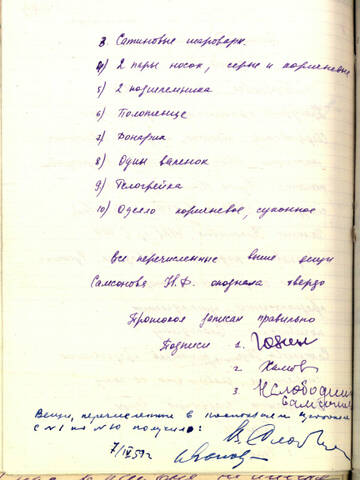 3. Сатиновые шаровары.
4) 2 пары носок, серые и коричневые
5) 2 подшлемника
6) Полотенце
7) Фонарик
8) Один валенок
9) Телогрейка
10) Одеяло коричневое, суконное
Все перечисленные выше вещи
Самсонова Н.Ф. опознала твердо
Протокол записан правильно
Подписи 1.
2.
3. Н Слободин
Самсонова
Вещи, перечисленные в настоящем протоколе
с №1 по №10 получил:
7/IV 59г.